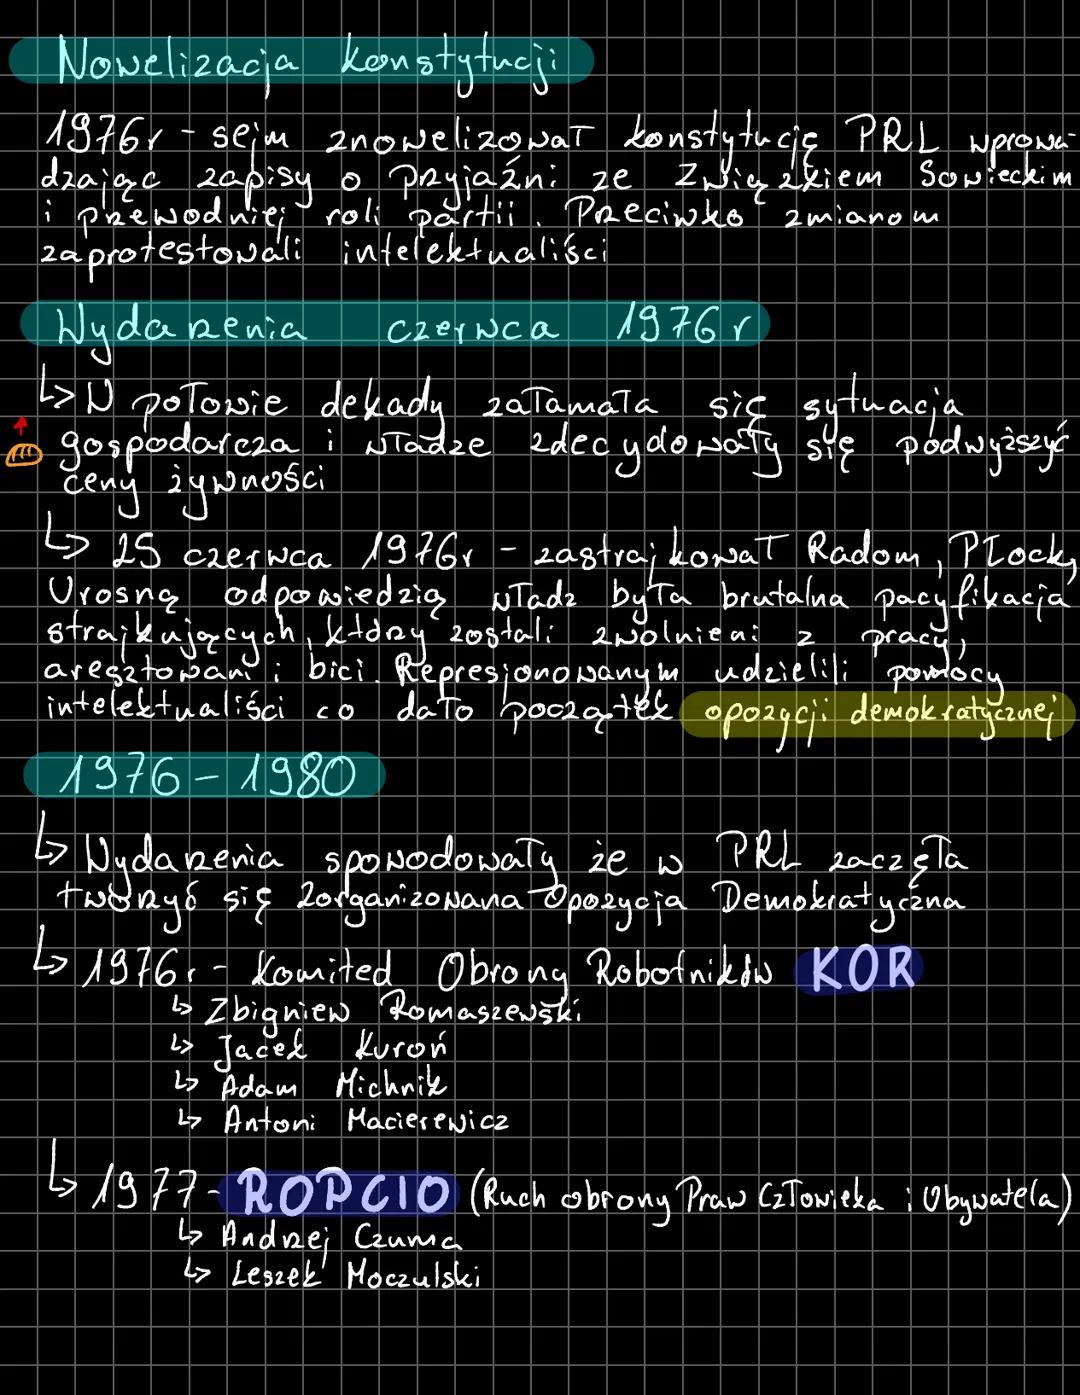 Nowelizacja konstytucji
1976r - sejm znowelizował konstytucję PRL wprowa-
dzając zapisy o przyjaźni ze Związkiem Sowieckim
i przewodniej roli partii. Przeciwko zmianom
zaprotestowali intelektualiści
Wydarzenia czerwca 1976r
↳ W połowie dekady załamała się sytuacja
gospodarcza i władze zdecydowały się podwyższyć
ceny żywności
↳ 25 czerwca 1976r - zastrajkował Radom, Płock,
Urosną odpowiedzią władz była brutalna pacyfikacja
strajkujących, którzy zostali zwolnieni z pracy,
aresztowani i bici. Represjonowanym udzielili pomocy
intelektualiści co dało początek opozycji demokratycznej
1976-1980
↳ Wydarzenia spowodowały że w PRL zaczęła
tworzyć się Zorganizowana Opozycja Demokratyczna
↳ 1976r - Komited Obrony Robotników KOR
↳ Zbigniew Romaszewski
↳ Jacek Kuroń
↳ Adam Michnik
↳ Antoni Macierewicz
↳ 1977 - ROPCIO (Ruch obrony Praw Człowieka i Obywatela)
↳ Andrzej Czuma
↳ Leszek Moczulski